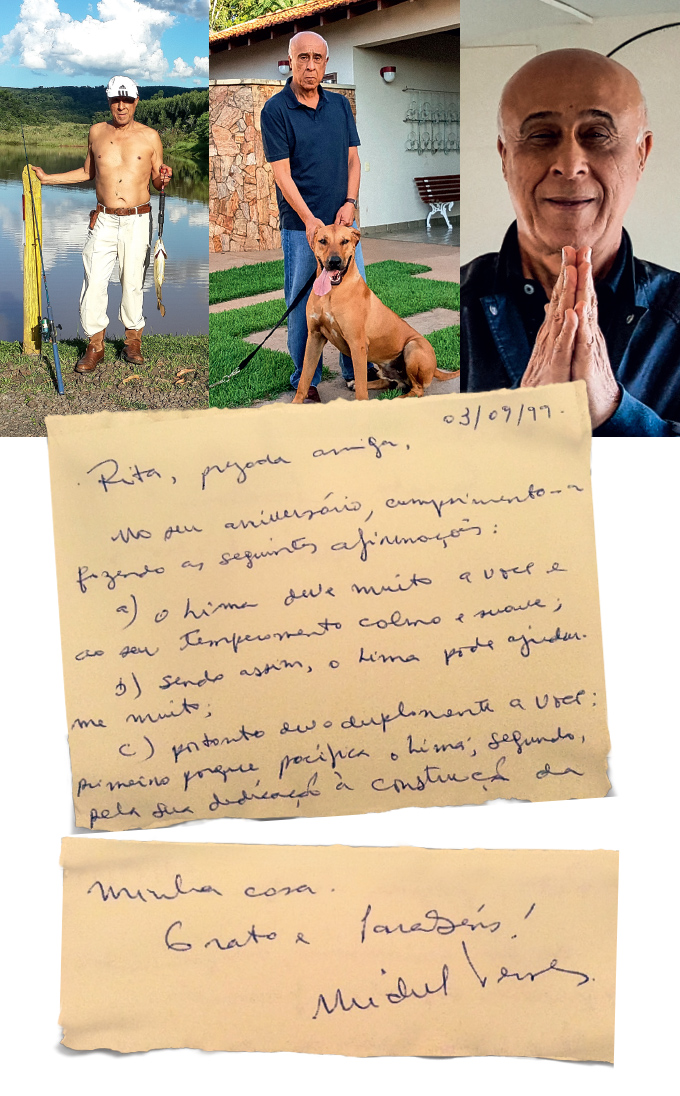 03/09/99.
Rita, prezada amiga,
No seu aniversário, cumprimento-a
fazendo as seguintes afirmações:
a) o Lima deve muito a você e
ao seu temperamento calmo e suave;
b) sendo assim, o Lima pode ajudar-
me muito;
c) portanto devo duplamente a você:
primeiro porque pacifica o Lima; segundo,
pela sua dedicação à construção da
minha casa.
Grato e Parabéns!
Michel